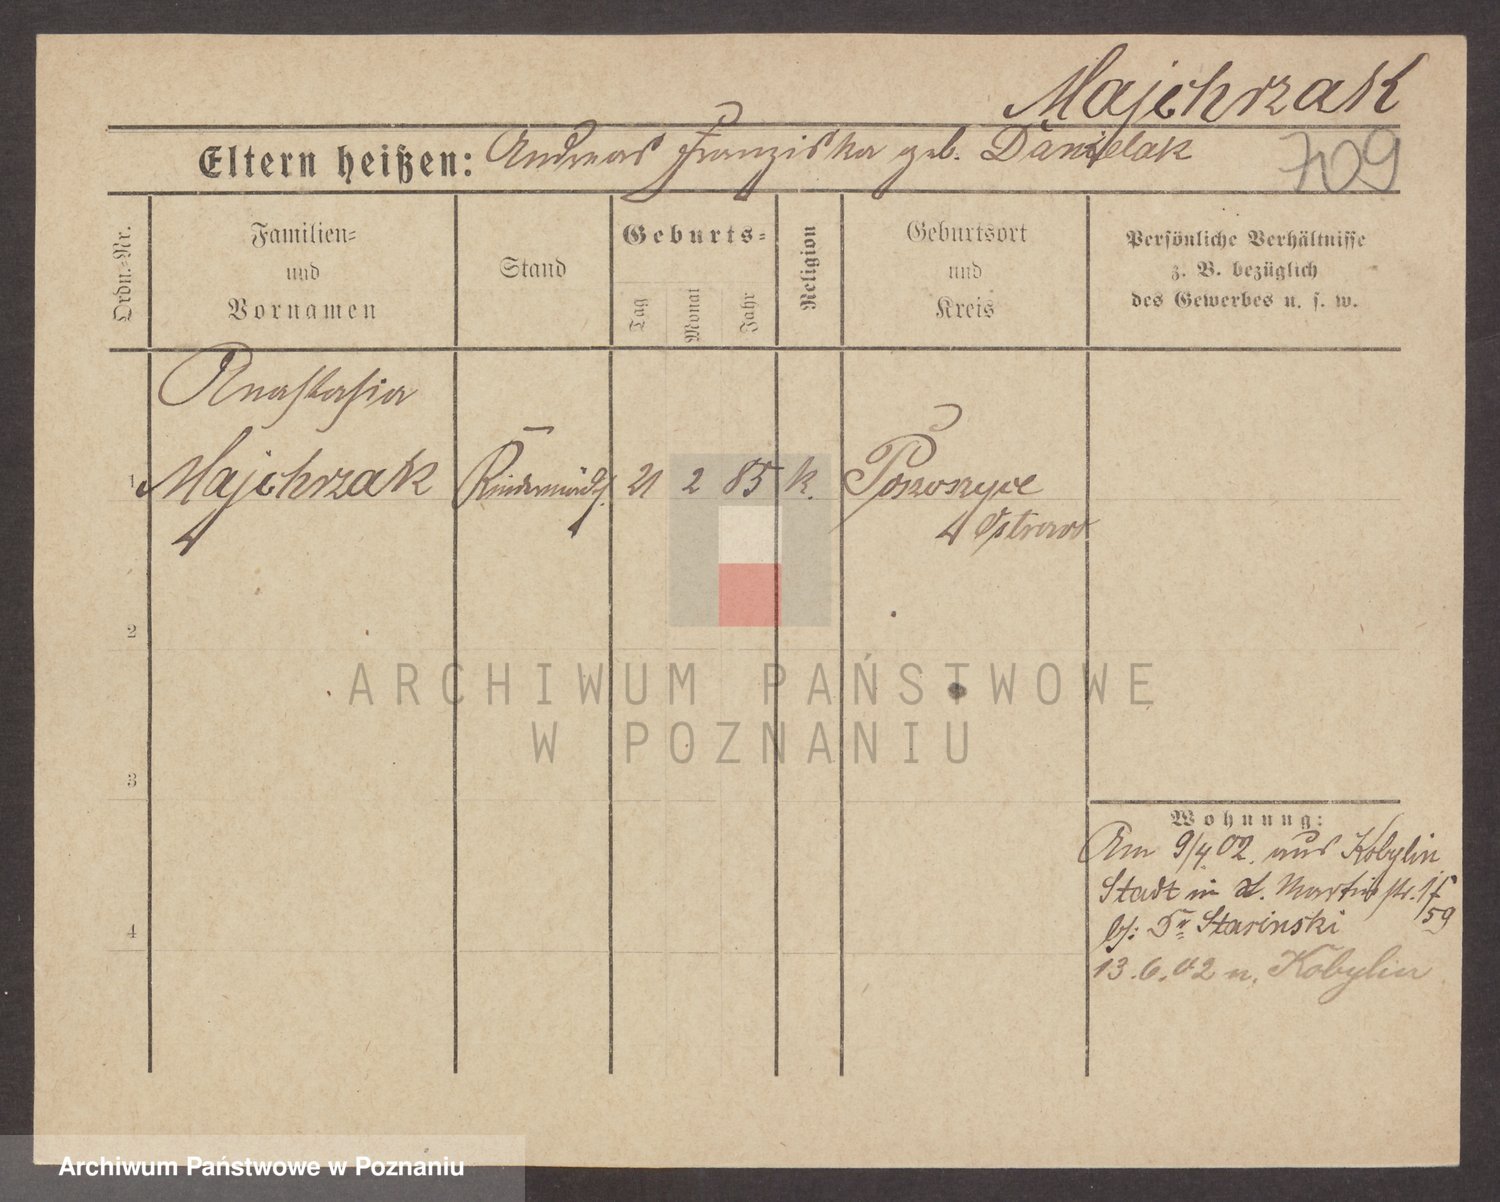 Majchrzak
Eltern heißen: Andreas Franziska geb. Danielak
709
Ordn.-Nr.
Familien-
und
Vornamen
Stand
Geburts-
Tag
Monat
Jahr
Religion
Geburtsort
und
Kreis
Persönliche Verhältnisse
z. B. bezüglich
des Gewerbes u. s. w.
Anastasia
1 Majchrzak Kindermädch. 21 2 85 k.
2
3
4
Wohnung:
Am 9/4 02. aus Kobylin
Stadt in St. Martinstr.
59
bei Dr Starinski
13.6.02 n. Kobylin
ARCHIWUM PAŃSTWOWE
W POZNANIU
Archiwum Państwowe w Poznaniu